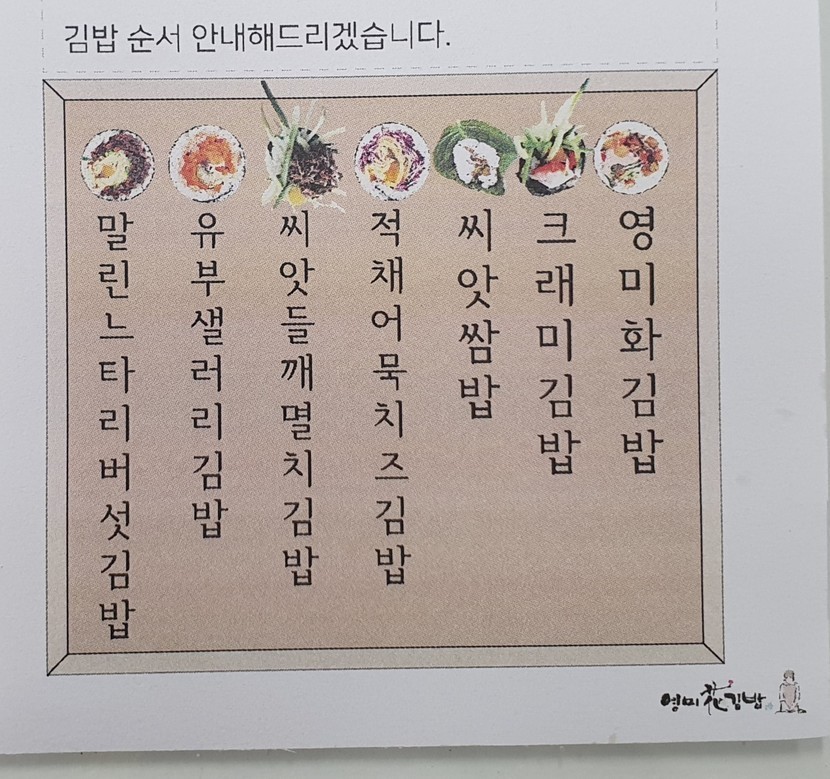 김밥 순서 안내해드리겠습니다.
말린느타리버섯김밥
유부샐러리김밥
씨앗들깨멸치김밥
적채어묵치즈김밥
씨앗쌈밥
크래미김밥
영미화김밥
영미花김밥